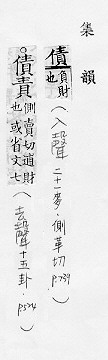 集韻
債負財也(入聲二十一麥·側革切p739)
債責側賣切逋財也或省文七(去聲十五卦·p524)